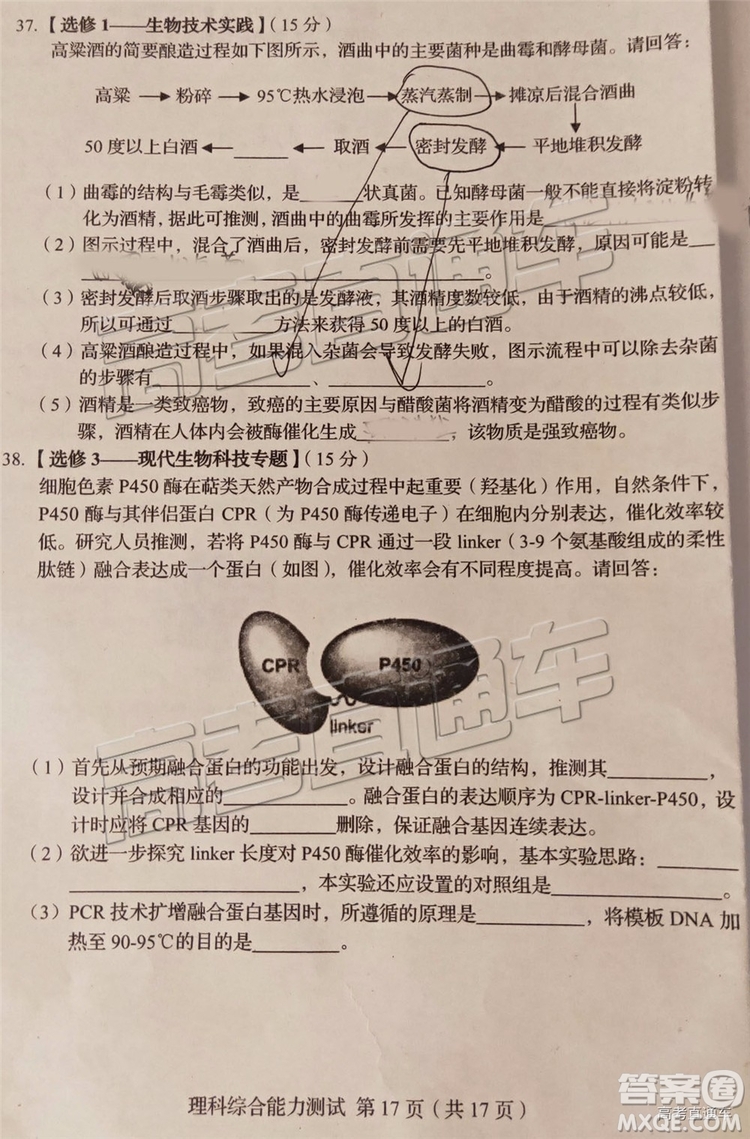 37. 【选修1——生物技术实践】(15分)
高粱酒的简要酿造过程如下图所示，酒曲中的主要菌种是曲霉和酵母菌。请回答：
高粱 → 粉碎 → 95℃热水浸泡 → 蒸汽蒸制 → 摊凉后混合酒曲
50度以上白酒 ← ____ ← 取酒 ← 密封发酵 ← 平地堆积发酵
（1）曲霉的结构与毛霉类似，是______状真菌。已知酵母菌一般不能直接将淀粉转
化为酒精，据此可推测，酒曲中的曲霉所发挥的主要作用是____________
（2）图示过程中，混合了酒曲后，密封发酵前需要先平地堆积发酵，原因可能是____
____________。
（3）密封发酵后取酒步骤取出的是发酵液，其酒精度数较低，由于酒精的沸点较低，
所以可通过________方法来获得50度以上的白酒。
（4）高粱酒酿造过程中，如果混入杂菌会导致发酵失败，图示流程中可以除去杂菌
的步骤有____________、____________。
（5）酒精是一类致癌物，致癌的主要原因与醋酸菌将酒精变为醋酸的过程有类似步
骤，酒精在人体内会被酶催化生成________，该物质是强致癌物。
38. 【选修3——现代生物科技专题】(15分)
细胞色素P450酶在萜类天然产物合成过程中起重要（羟基化）作用，自然条件下，
P450酶与其伴侣蛋白CPR（为P450酶传递电子）在细胞内分别表达，催化效率较
低。研究人员推测，若将P450酶与CPR通过一段linker（3-9个氨基酸组成的柔性
肽链）融合表达成一个蛋白（如图），催化效率会有不同程度提高。请回答：
CPR P450
linker
（1）首先从预期融合蛋白的功能出发，设计融合蛋白的结构，推测其__________，
设计并合成相应的__________。融合蛋白的表达顺序为CPR-linker-P450，设
计时应将CPR基因的________删除，保证融合基因连续表达。
（2）欲进一步探究linker长度对P450酶催化效率的影响，基本实验思路：________
____________________，本实验还应设置的对照组是____________。
（3）PCR技术扩增融合蛋白基因时，所遵循的原理是__________，将模板DNA加
热至90-95℃的目的是________。
理科综合能力测试 第17页（共17页）
高考直通车
高考直通车
答案圈
MXQE.COM
高考直通车